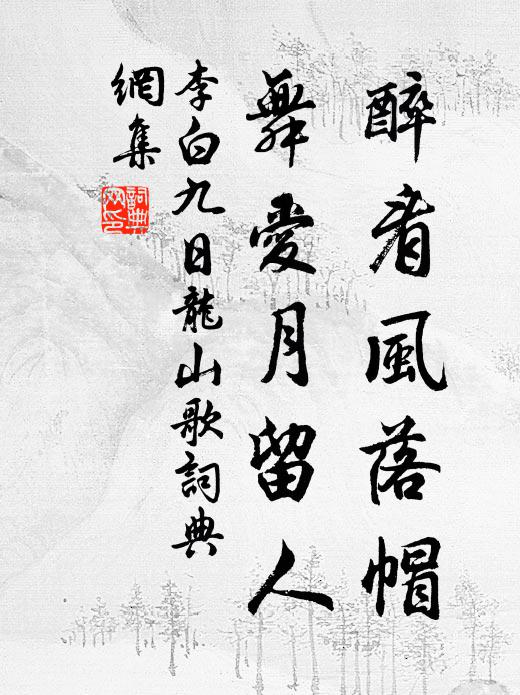 醉看風落帽
舞愛月留人
李白九日龍山歌詞典
網集
詞典網印